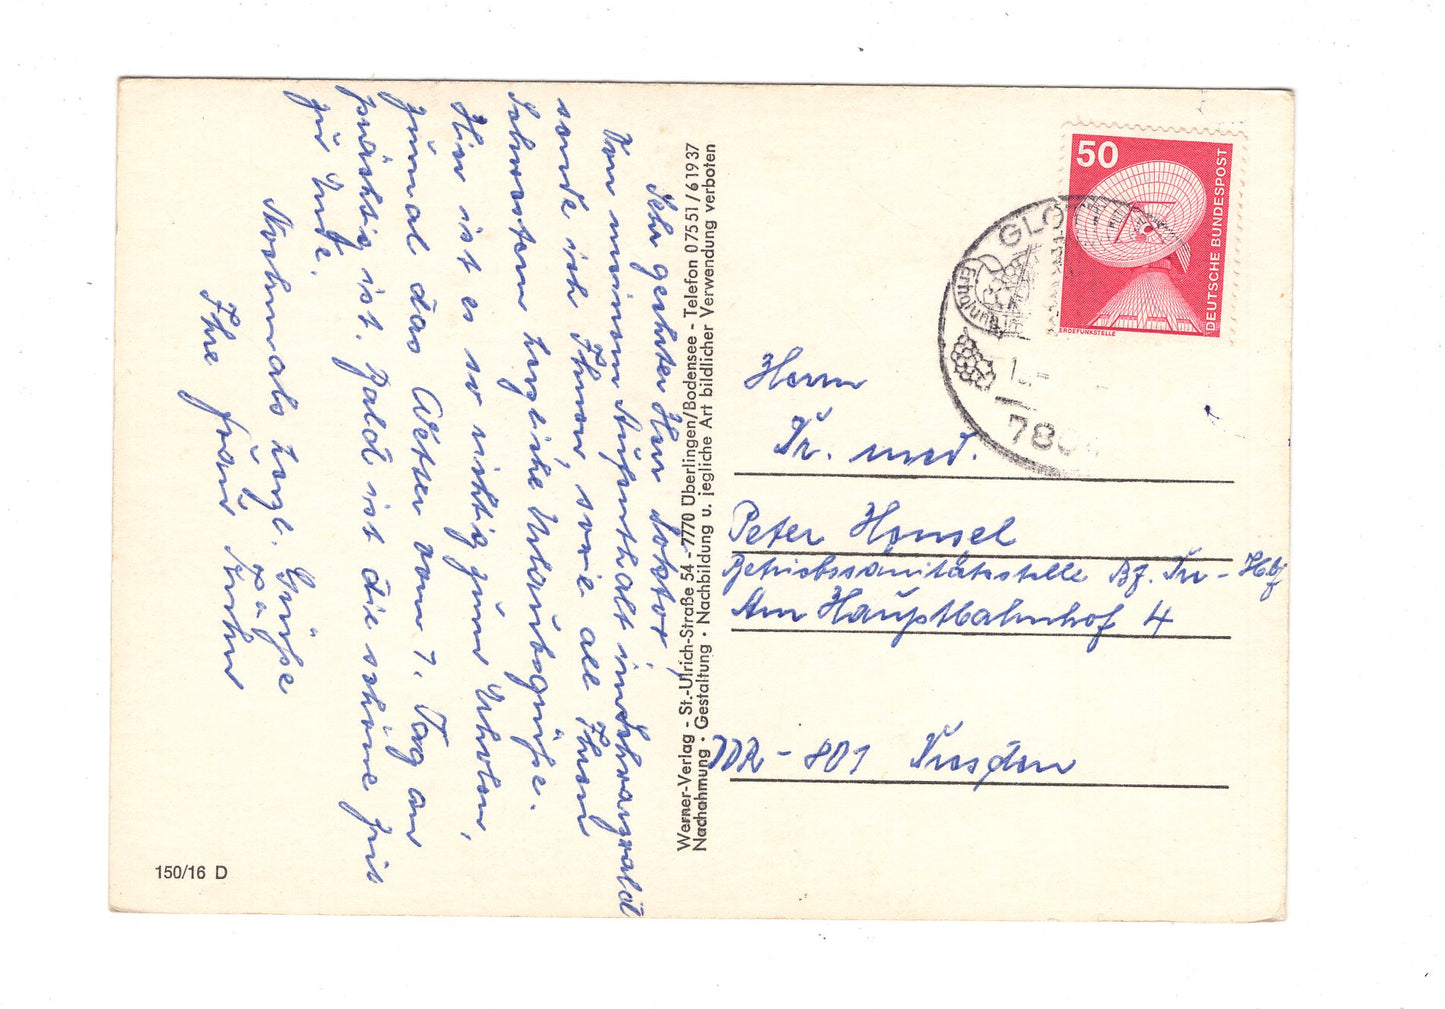 Sehr geehrter Herr Doktor,
Von meinem Aufenthalt im Schwarzwald
sende ich Ihnen, sowie all Ihren
Schwestern herzliche Urlaubsgrüße.
Hier ist es so richtig zum Erholen,
zumal das Wetter vom 1. Tag an
prächtig ist. Bald ist die schöne Zeit
zu Ende.
Nochmals herzl. Grüße
Ihre Frau
Werner-Verlag - St.-Ulrich-Straße 54 - 7770 Überlingen/Bodensee - Telefon 07551/61937
Nachahmung • Gestaltung • Nachbildung u. jegliche Art bildlicher Verwendung verboten
50
DEUTSCHE BUNDESPOST
ERDEFUNKSTELLE
GLO
Erholung
78
Herrn
Dr. med.
Peter Honsel
Betriebssanitätsstelle Bf. Dr - Hbf
Am Hauptbahnhof 4
DDR - 801 Dresden
150/16 D